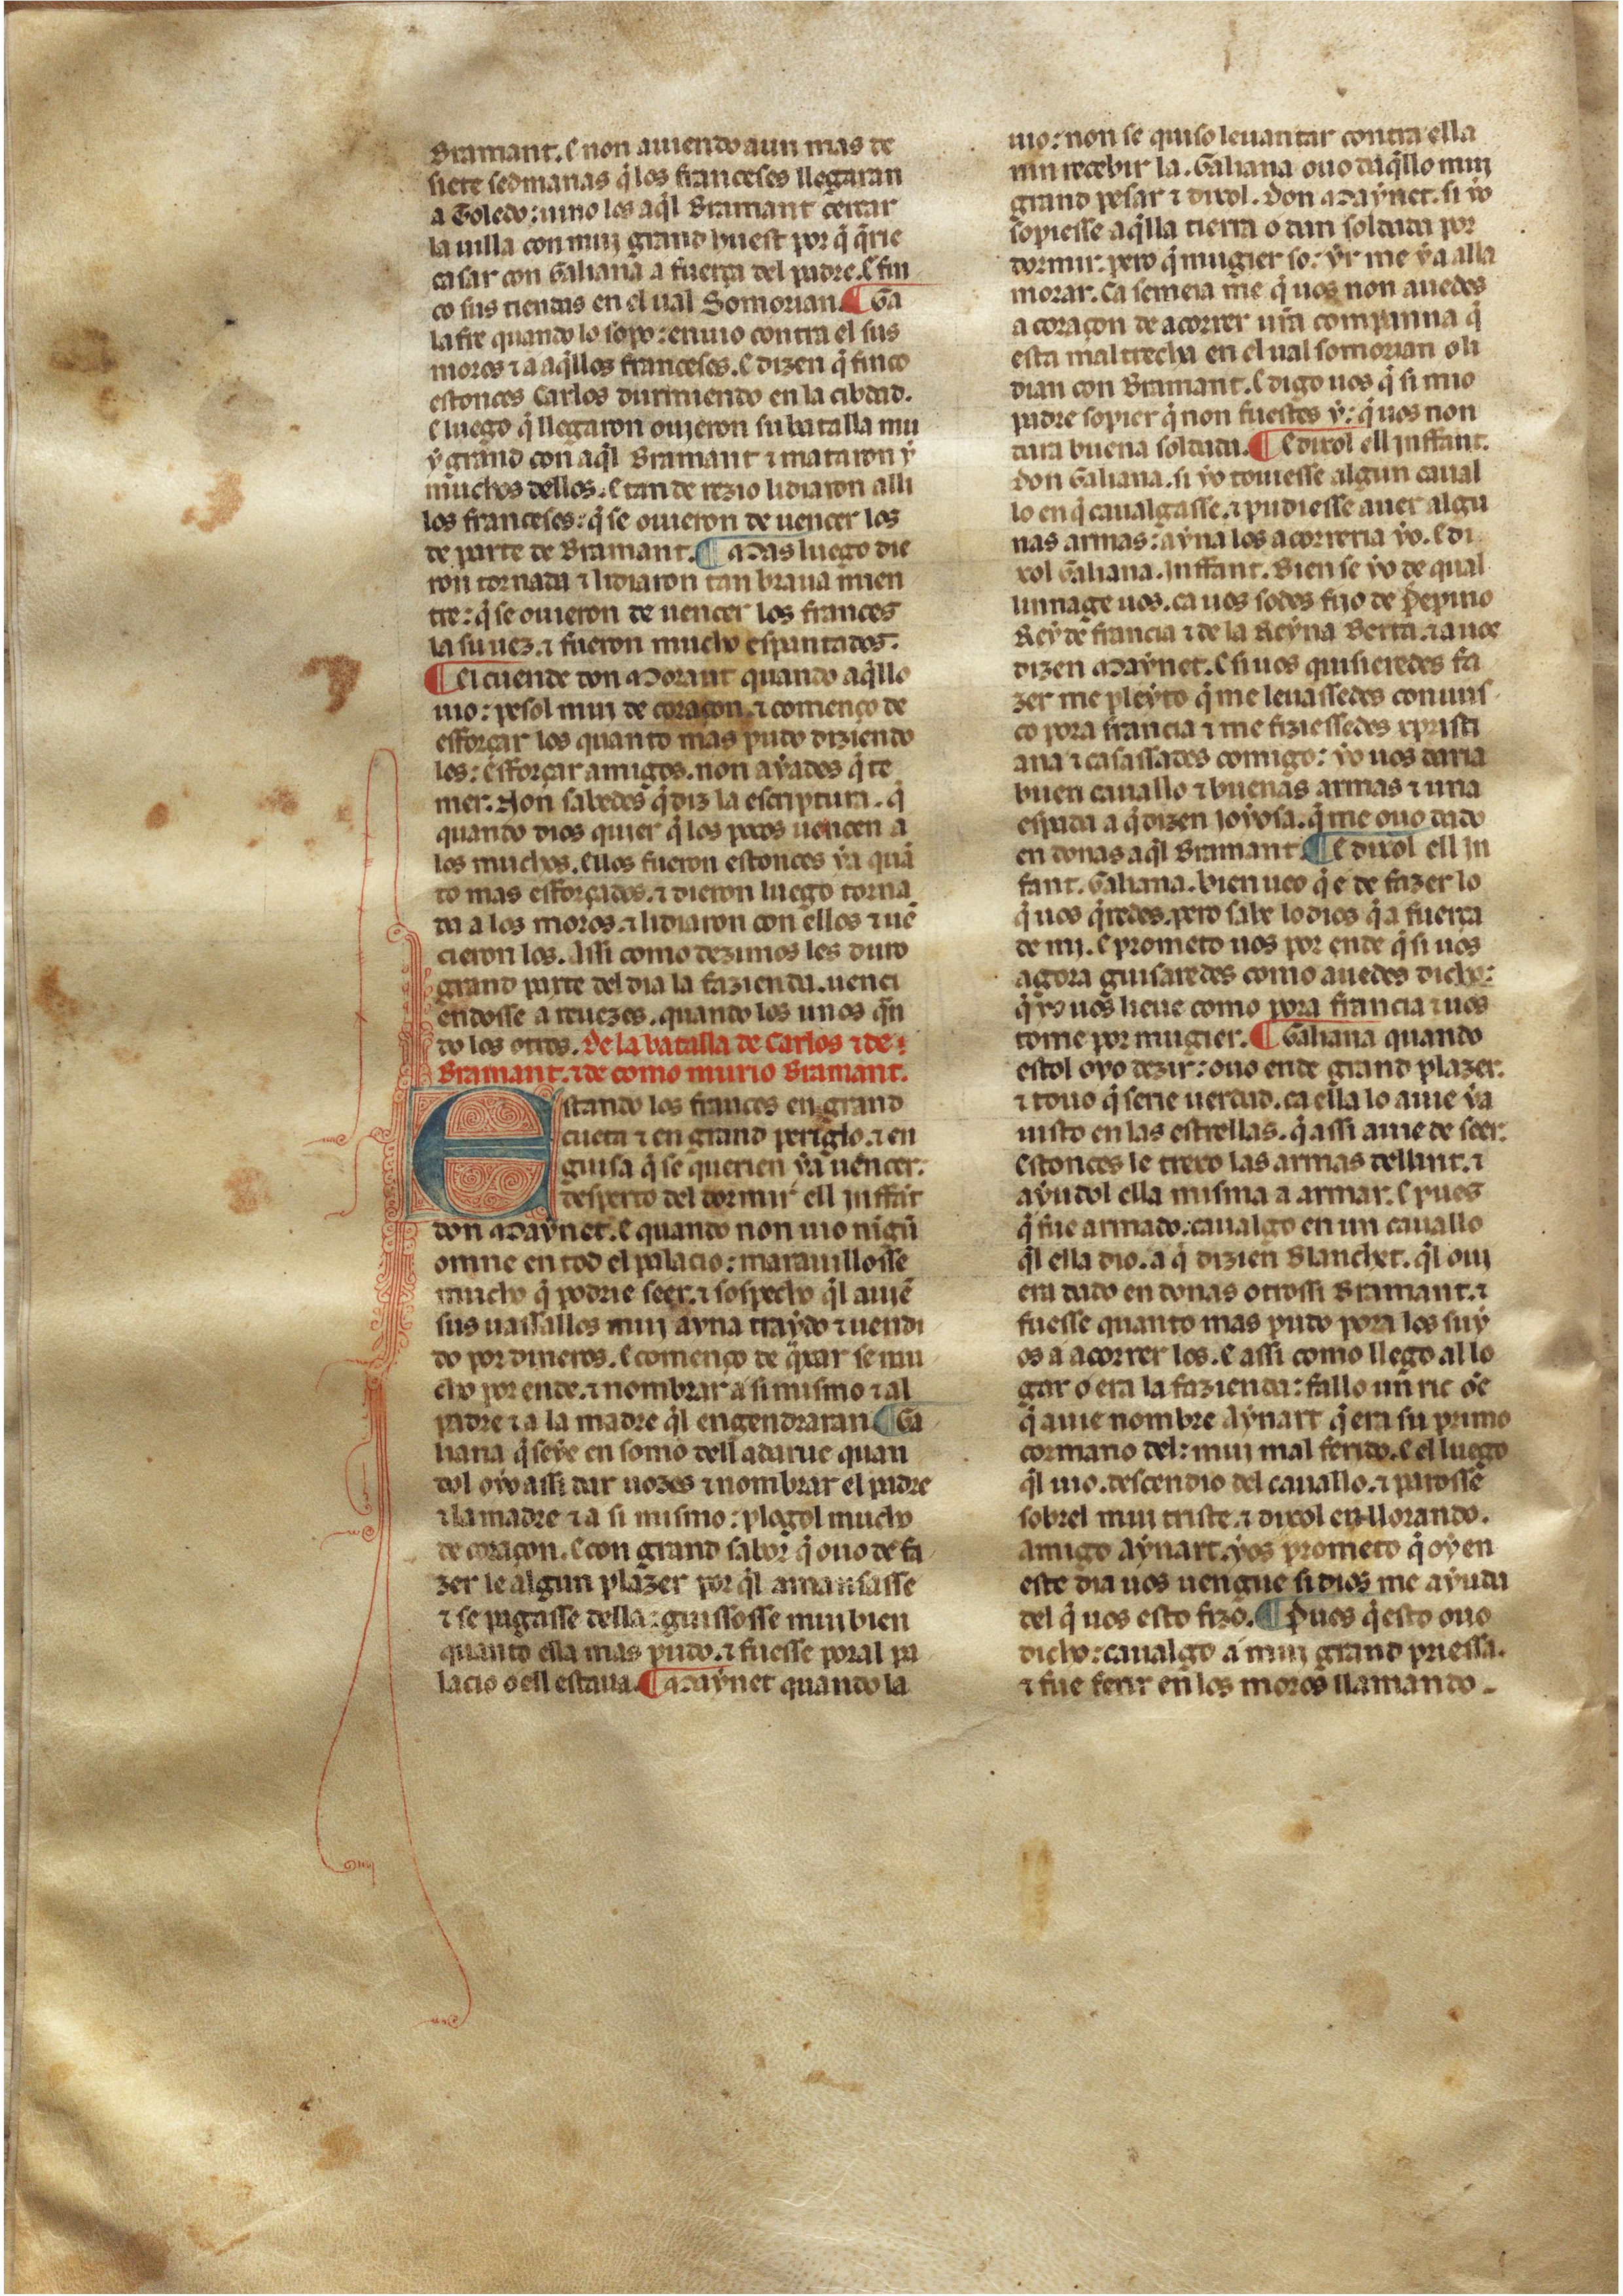 Bramant. E non auiendo aun mas de
siete sedmanas q̃ los franceses llegaran
a Toledo: uino los aq̃l Bramant cercar
la uilla con muy grand huest por q̃ q̃rie
casar con Galiana a fuerça del padre. E fin
co sus tiendas en el ual Somorian. ¶ Ga
lafre quando lo sopo: enuio contra el sus
moros ⁊ a aq̃llos franceses. E dizen q̃ finco
estonces Carlos durmiendo en la cibdad.
E luego q̃ llegaron ouieron su batalla mu
ẏ grand con aq̃l Bramant ⁊ mataron ẏ
muchos dellos. E tan de rezio lidiaron alli
los franceses: q̃ se ouieron de uencer los
de parte de Bramant. ¶ Mas luego die
ron tornada ⁊ lidiaron tan braua mien
tre: q̃ se ouieron de uencer los frances
la su uez. ⁊ fueron mucho espantados.
¶ El cuende don Morant quando aq̃llo
uio: pesol muy de coraçon. ⁊ començo de
esforçar los quanto mas pudo diziendo
les: esforçar amigos. non aẏades q̃ te
mer. Non sabedes q̃ diz la escriptura. q̃
quando dios quier q̃ los pocos uencen a
los muchos. Ellos fueron estonces ẏa quã
to mas esforçados. ⁊ dieron luego torna
da a los moros. ⁊ lidiaron con ellos ⁊ uẽ
cieron los. Assi como dezimos les duro
grand parte del dia la fazienda. uenci
endosse a reuezes. quando los unos q̃n
do los otros. De la batalla de Carlos ⁊ de
Bramant. ⁊ de como murio Bramant.
Estando los frances en grand
cueta ⁊ en grand periglo. ⁊ en
guisa q̃ se querien ẏa uencer:
desperto del dormir ell Inffãt
don Maẏnet. E quando non uio nigũ
omne en tod el palacio: marauillosse
mucho q̃ podrie seer. ⁊ sospecho q̃l auiẽ
sus uassallos muy aẏna traẏdo ⁊ uendi
do por dineros. E començo de q̃xar se mu
cho por ende. ⁊ nombrar a si mismo ⁊ al
padre ⁊ a la madre q̃l engendraran ¶ Ga
liana q̃ seẏe en somo dell adarue quan
dol oẏo assi dar uozes ⁊ nombrar el padre
⁊ la madre ⁊ a si mismo: plogol mucho
de coraçon. E con grand sabor q̃ ouo de fa
zer le algun plazer por q̃l amansasse
⁊ se pagasse della: guissosse muy bien
quanto ella mas pudo. ⁊ fuesse poral pa
lacio o ell estaua. ¶ Maẏnet quando la
uio: non se quiso leuantar contra ella
nin recebir la. Galiana ouo daq̃llo muy
grand pesar ⁊ dixol. Don Maẏnet. si ẏo
sopiesse aq̃lla tierra o dan soldada por
dormir. pero q̃ mugier so: ẏr me ẏa alla
morar. Ca semeia me q̃ uos non auedes
a coraçon de acorrer ur̃a companna q̃
esta mal trecha en el ual somorian o li
dian con Bramant. E digo uos q̃ si mio
padre sopier q̃ non fuestes ẏ: q̃ uos non
dara buena soldada. ¶ E dixol ell Inffant.
don Galiana. si ẏo touiesse algun caual
lo en q̃ caualgasse. ⁊ pudiesse auer algu
nas armas: aẏna los acorreria ẏo. E di
xol Galiana. Inffant. Bien se ẏo de qual
linnage uos. ca uos sodes fijo de Pepino
Reẏ de francia ⁊ de la Reẏna Berta. ⁊ auos
dizen Maẏnet. E si uos quisieredes fa
zer me pleẏto q̃ me leuassedes conuus
co pora francia ⁊ me fiziessedes xp̃risti
ana ⁊ casassades comigo: ẏo uos daria
buen cauallo ⁊ buenas armas ⁊ una
espada a q̃ dizen Ioẏosa. q̃ me ouo dado
en donas aq̃l Bramant. ¶ E dixol ell In
fant. Galiana. bien ueo q̃ e de fazer lo
q̃ uos q̃redes. pero sabe lo dios q̃ a fuerça
de mi. E prometo uos por ende q̃ si uos
agora guisaredes como auedes dicho:
q̃ ẏo uos lieue como pora francia ⁊ uos
tome por mugier. ¶ Galiana quando
estol oẏo dezir: ouo ende grand plazer.
⁊ touo q̃ serie uerdad. ca ella lo auie ẏa
uisto en las estrellas. q̃ assi auie de seer.
Estonces le trexo las armas dellant. ⁊
aẏudol ella misma a armar. E pues
q̃ fue armado: caualgo en un cauallo
q̃l ella dio. a q̃ dizien Blanchet. q̃l oui
era dado en donas otrossi Bramant. ⁊
fuesse quanto mas pudo pora los suẏ
os a acorrer los. E assi como llego al lo
gar o era la fazienda: fallo un ric oẽ
q̃ auie nombre Aẏnart q̃ era su primo
cormano del: muy mal ferido. E el luego
q̃l uio. descendio del cauallo. ⁊ parosse
sobrel muy triste. ⁊ dixol en llorando.
amigo Aẏnart. ẏos prometo q̃ oẏ en
este dia uos uengue si dios me aẏuda
del q̃ uos esto fizo. ¶ Pues q̃ esto ouo
dicho: caualgo a muy grand priessa.
⁊ fue ferir en los moros llamando